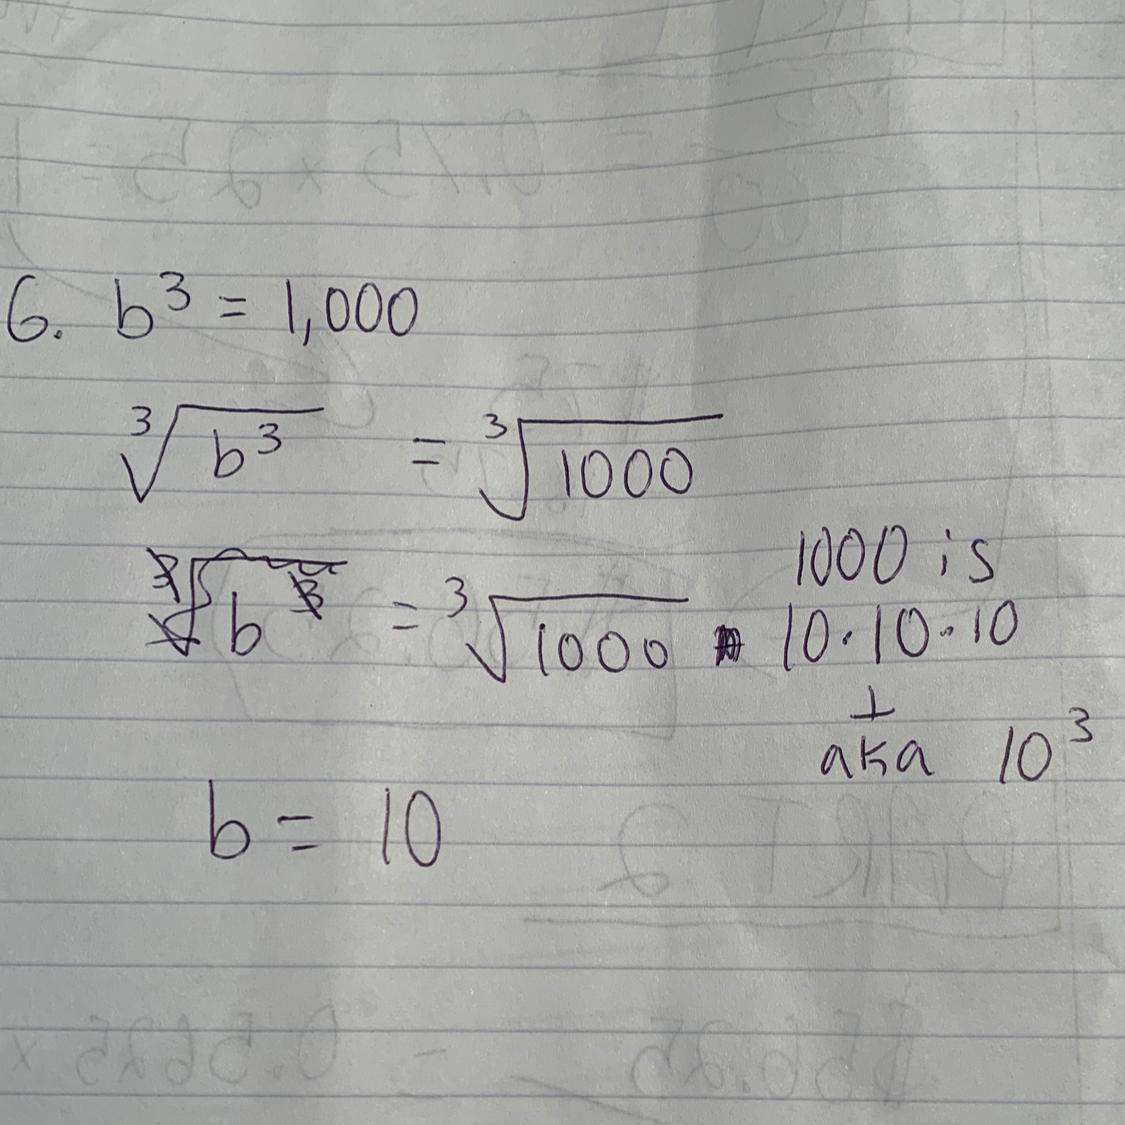 6. b³ = 1,000
∛b³ = ∛1000
∛b³ = ∛1000
1000 is
10·10·10
aka 10³
b = 10